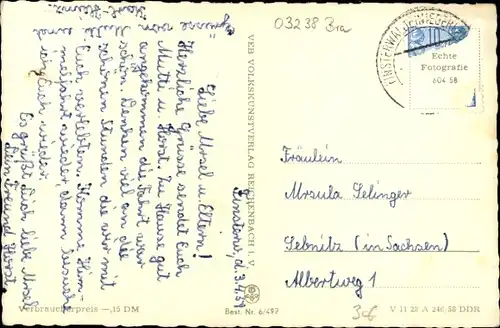 03238 Bra
Finsterw., d. 3.4.59
Liebe Ursel u. Eltern!
Herzliche Grüsse sendet Euch
Mutti u. Horst. Zu Hause gut
angekommen die Fahrt war
schön. Denken viel an die
schönen Stunden die wir mit
Euch verlebten. Komme Him-
melfahrt wieder, dann besuche
ich Euch wieder.
Es grüßt Dich liebe Ursel
Dein Freund Horst.
Grüsse von
VEB VOLKSKUNSTVERLAG REICHENBACH I. V.
FINSTERWALDE (NIEDERL
Echte
Fotografie
604 58
Fräulein
Ursula Selinger
Sebnitz (in Sachsen)
Albertweg 1
306
Verbraucherpreis —,15 DM
Best. Nr. 6/497
V 11 28 A 246/58 DDR